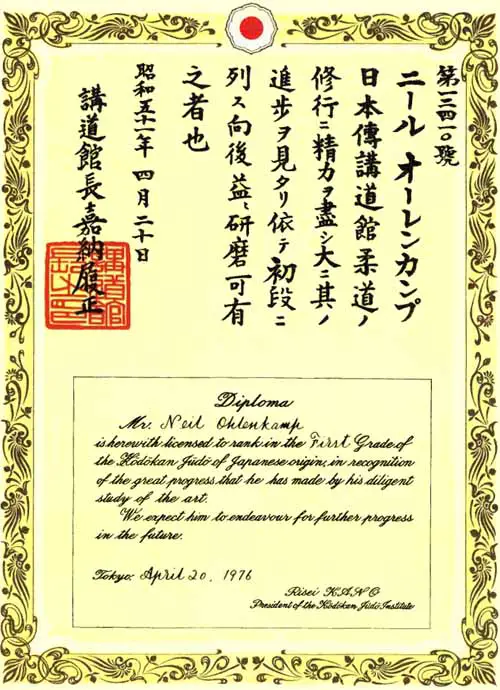 第一三四一〇號
ニール オーレンカンプ
日本傳講道館柔道ノ
修行ニ精力ヲ盡シ大ニ其ノ
進歩ヲ見タリ依テ初段ニ
列ス向後益〻研磨可有
之者也
昭和五十一年 四月二十日
講道館長嘉納履正
Diploma
Mr. Neil Ohlenkamp
is herewith licensed to rank in the First Grade of
the Kōdōkan Jūdō of Japanese origin, in recognition
of the great progress that he has made by his diligent
study of the art.
We expect him to endeavour for further progress
in the future.
Tokyo: April 20, 1976
Risei KANO
President of the Kōdōkan Jūdō Institute